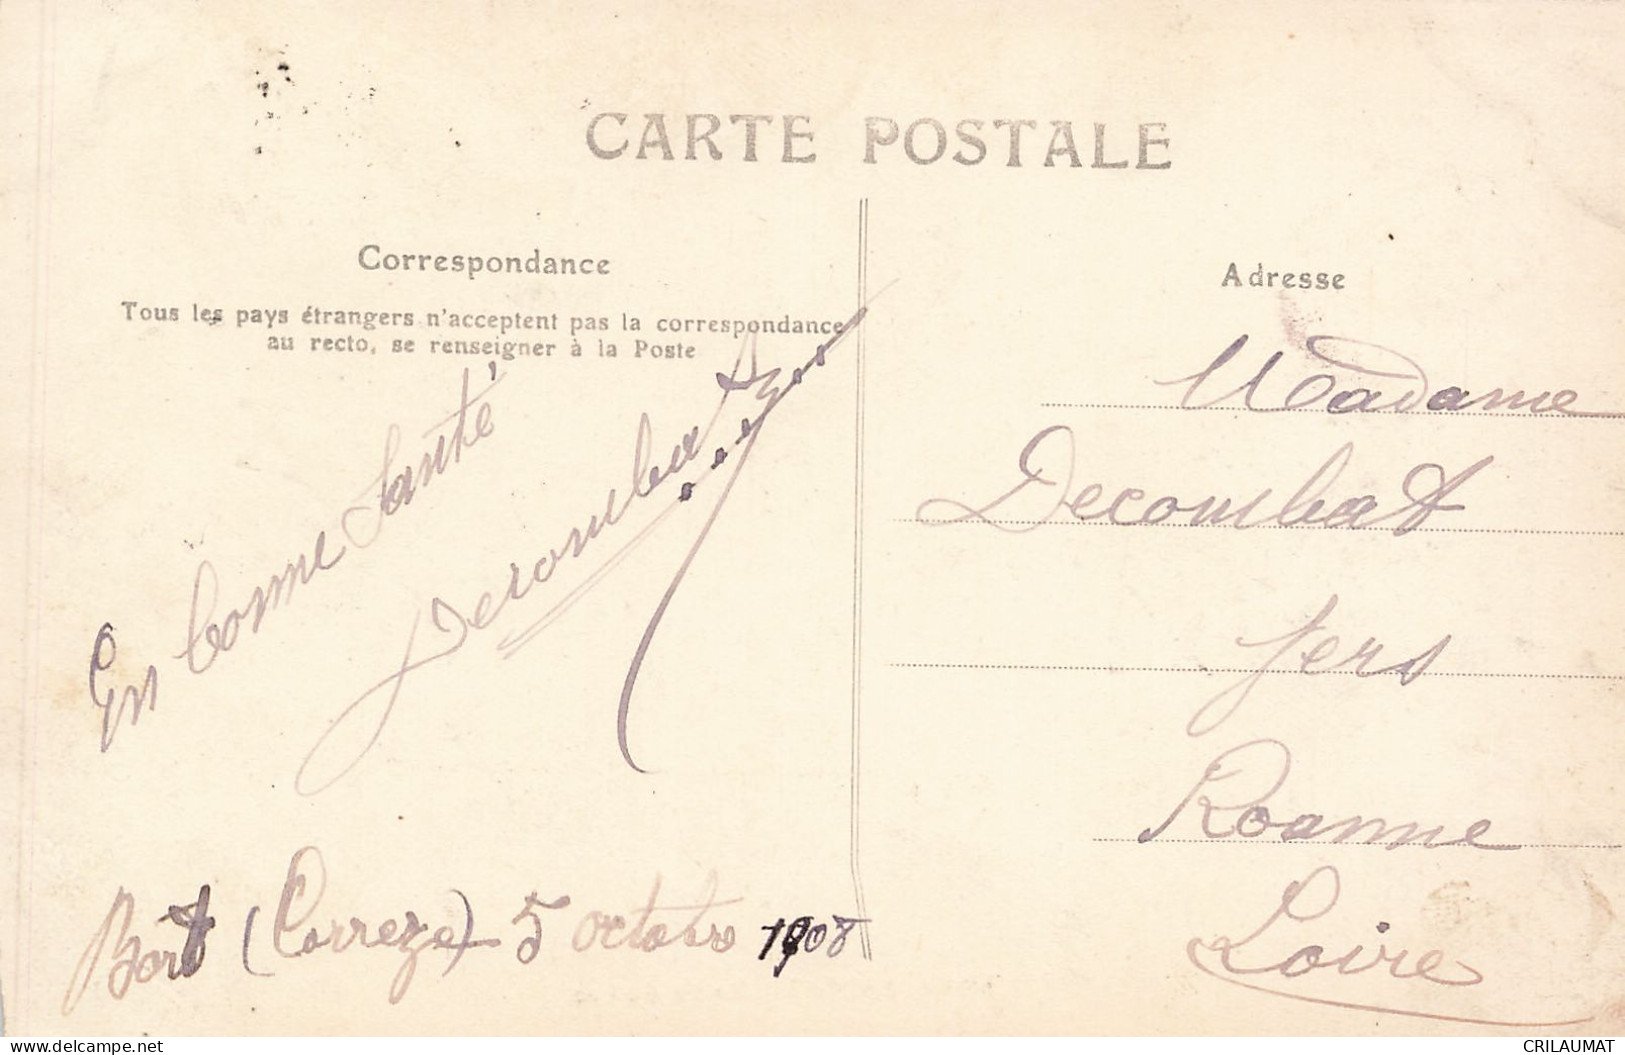 CARTE POSTALE
Correspondance
Tous les pays étrangers n'acceptent pas la correspondance
au recto, se renseigner à la Poste
En bonne Santé
Decombat
Bort (Correze) 5 octobre 1908
Adresse
Madame
Decombat
fers
Roanne
Loire
delcampe.net
CRILAUMAT